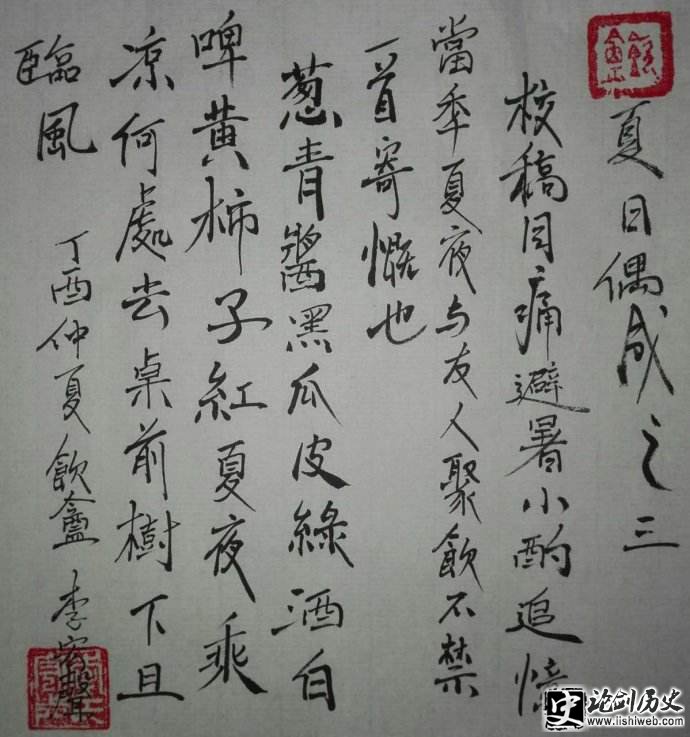 夏日偶成之三
校稿目痛避暑小酌追憶
當年夏夜与友人聚飲不禁
一首寄慨也
葱青醬黑瓜皮綠酒白
啤黄柿子紅夏夜乘
凉何處去桌前樹下且
臨風
丁酉仲夏飲盦李宏聲
史 论剑历史
www.lishiweb.com